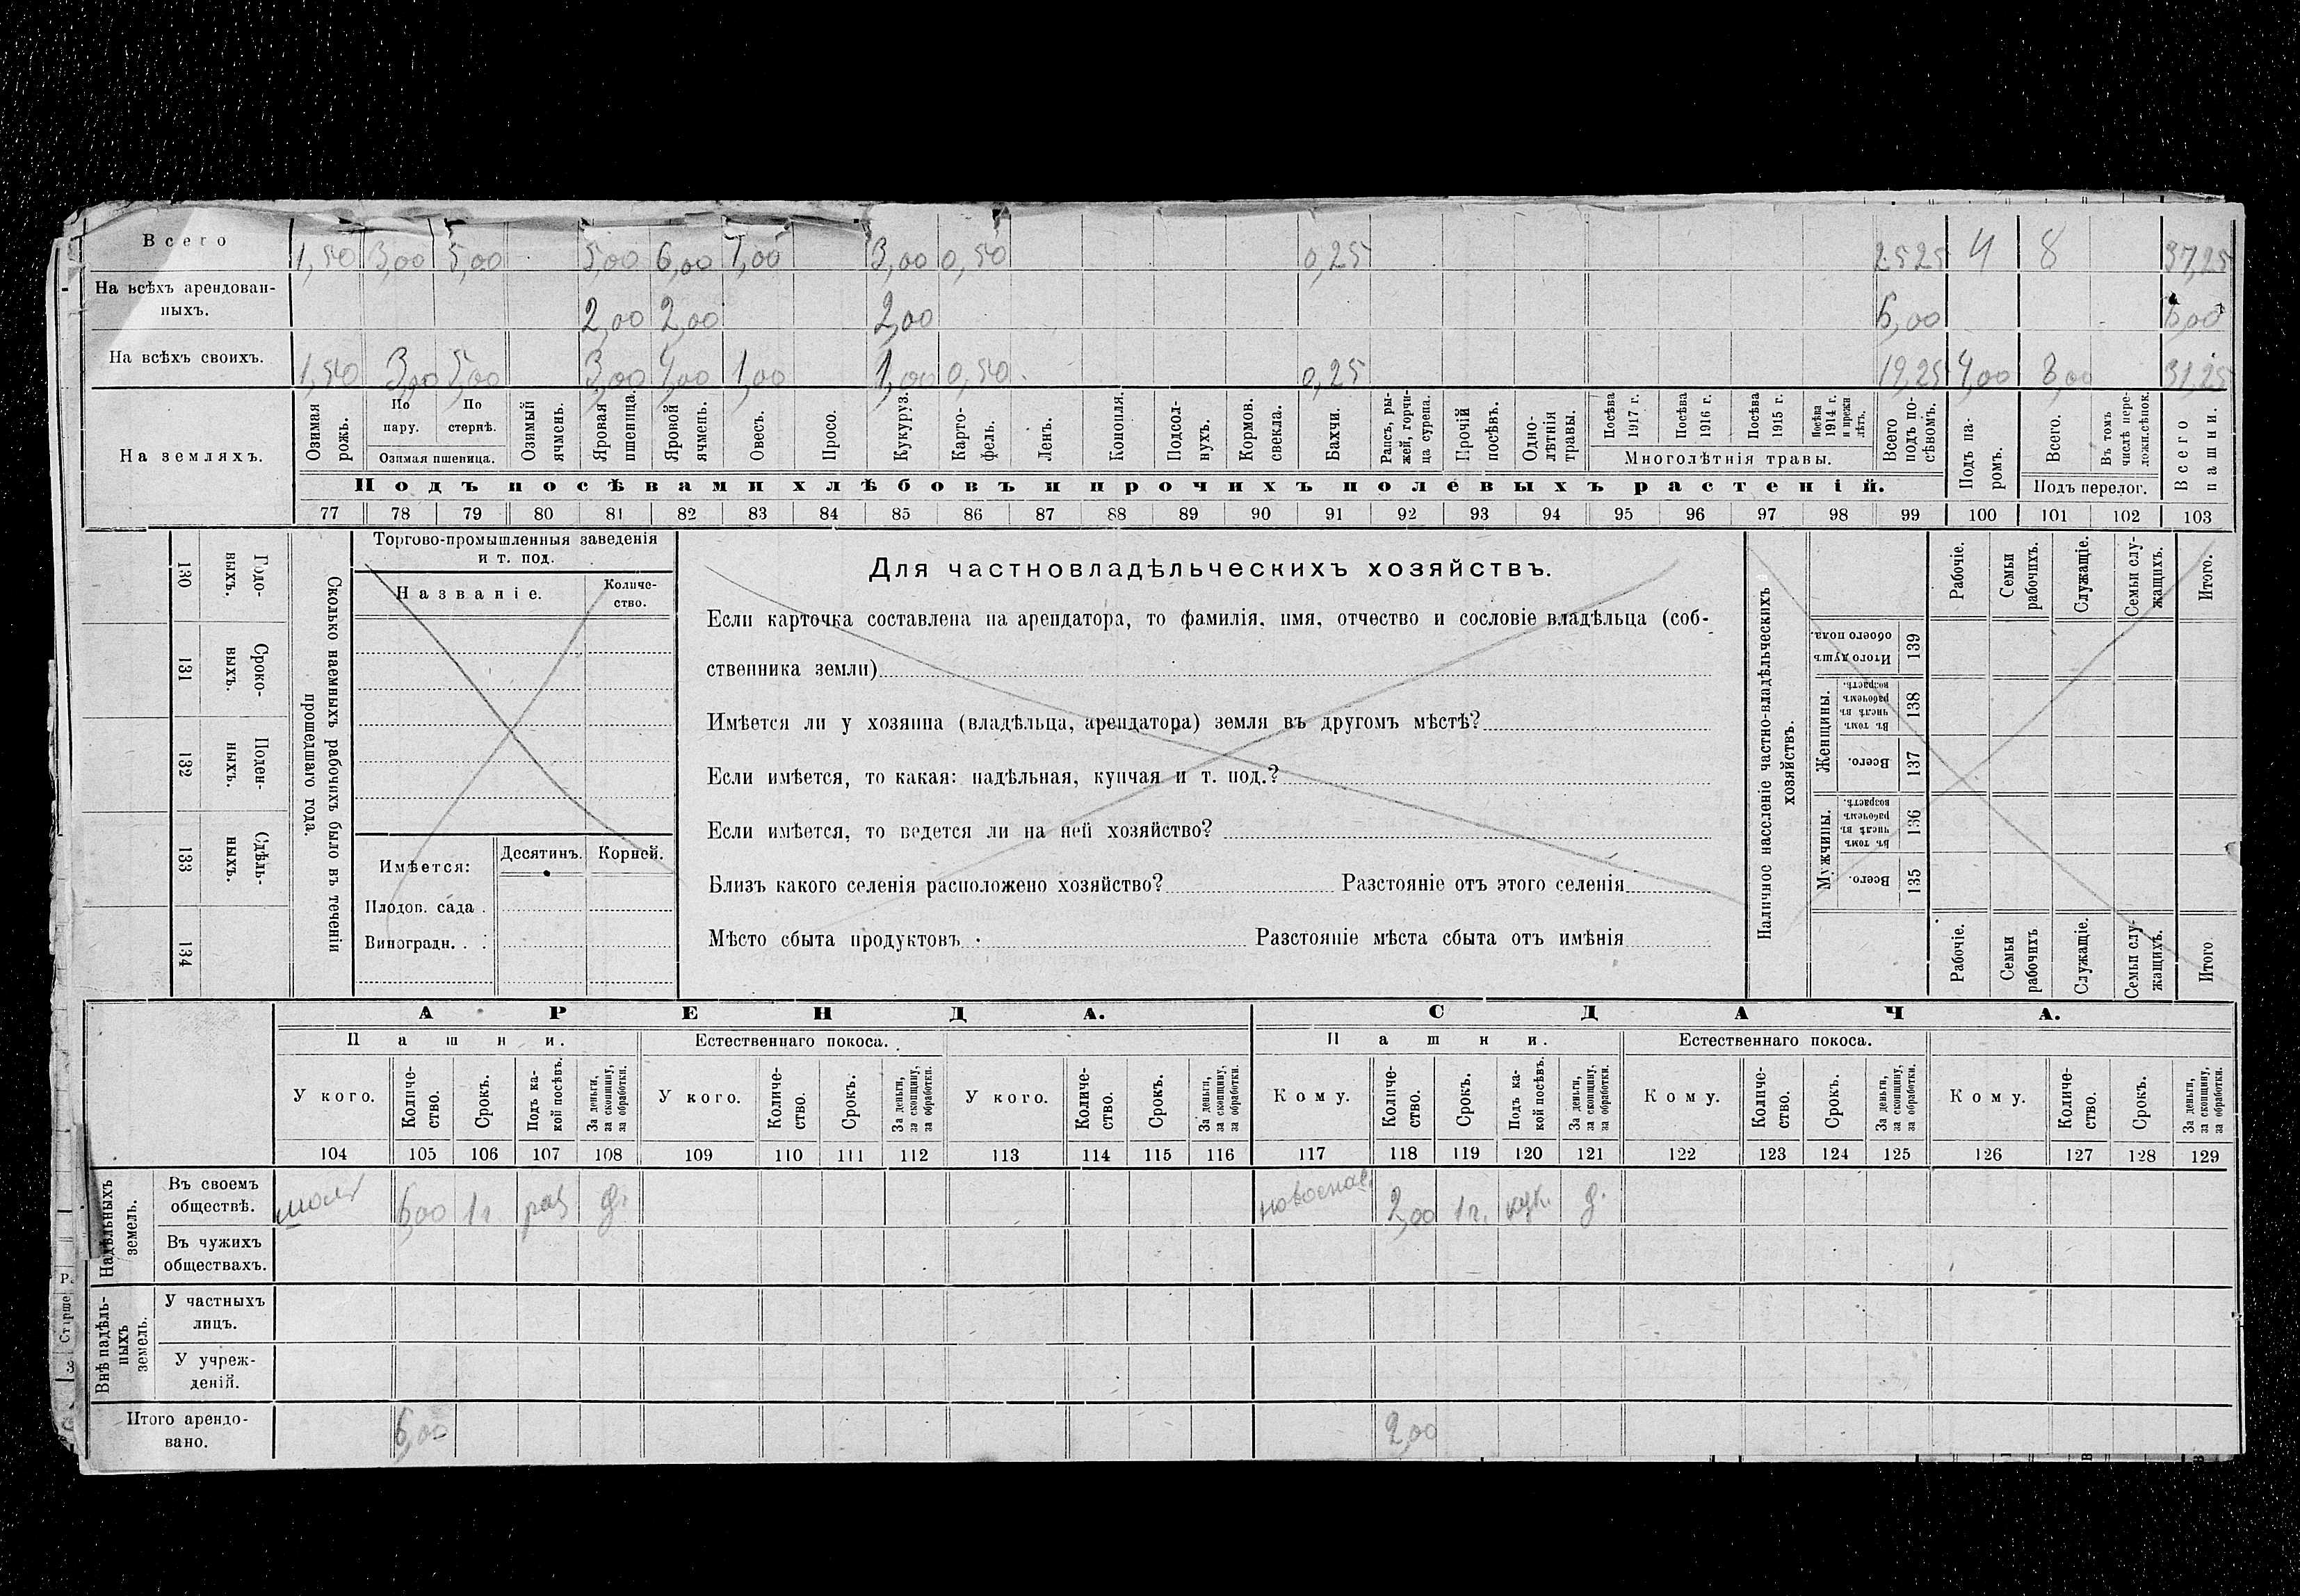 Всего 1,50 3,00 5,00 5,00 6,00 1,00 3,00 0,50 0,25 25 25 4 8 37,25
На всѣхъ арендован-
ныхъ. 2,00 2,00 2,00 6,00 6,00
На всѣхъ своихъ. 1,50 3,00 5,00 3,00 4,00 1,00 1,00 0,50 0,25 19,25 4,00 8,00 31,25
На земляхъ.
Озимая рожь.
По пару.
По стернѣ.
Озимая пшеница.
Озимый ячмень.
Яровая пшеница.
Яровой ячмень.
Овесъ.
Просо.
Кукуруз.
Карто-
фель.
Ленъ.
Конопля.
Подсол-
нухъ.
Кормов.
свекла.
Бахчи.
Рапсъ, ры-
жей, горчи-
ца сурепа.
Прочій
посѣвъ.
Одно-
лѣтнія
травы.
Посѣва
1917 г.
Посѣва
1916 г.
Посѣва
1915 г.
Посѣва
1914 г.
и прежн
лѣтъ.
Многолѣтнія травы.
Всего
подъ по-
сѣвомъ.
Подъ па-
ромъ.
Всего.
Въ томъ
числѣ пере-
ложн.сѣнок.
Подъ перелог.
Всего
пашни.
Подъ посѣвами хлѣбовъ и прочихъ полевыхъ растеній.
77 78 79 80 81 82 83 84 85 86 87 88 89 90 91 92 93 94 95 96 97 98 99 100 101 102 103
130 Годо-
ныхъ.
131 Сроко-
выхъ.
132 Поден-
ныхъ.
133 Сдѣль-
ныхъ.
134
Сколько наемныхъ рабочихъ было въ теченіи
прошедшаго года.
Торгово-промышленныя заведенія
и т. под.
Названіе.
Количе-
ство.
Имѣется: Десятинъ. Корней.
Плодов. сада .
Виноградн. . .
Для частновладѣльческихъ хозяйствъ.
Если карточка составлена на арендатора, то фамилія, имя, отчество и сословіе владѣльца (соб-
ственника земли)
Имѣется ли у хозяина (владѣльца, арендатора) земля въ другомъ мѣстѣ?
Если имѣется, то какая: надѣльная, купчая и т. под.?
Если имѣется, то ведется ли на ней хозяйство?
Близъ какого селенія расположено хозяйство? Разстояніе отъ этого селенія
Мѣсто сбыта продуктовъ Разстояніе мѣста сбыта отъ имѣнія
Наличное населеніе частно-владѣльческихъ
хозяйствъ.
Рабочіе.
Семьи
рабочихъ.
Служащіе.
Семьи слу-
жащихъ.
Итого.
Итого душъ
обоего пола.
139
Женщины.
Въ томъ
числѣ въ
рабочемъ
возрастѣ.
138
Всего.
137
Мужчины.
Въ томъ
числѣ въ
рабочемъ
возрастѣ.
136
Всего.
135
Рабочіе.
Семьи
рабочихъ
Служащіе.
Семьи слу-
жащихъ.
Итого.
АРЕНДА. СДАЧА.
Пашни. Естественнаго покоса. Пашни. Естественнаго покоса.
У кого.
Количе-
ство.
Срокъ.
Подъ ка-
кой посѣвъ.
За деньги,
за скопщину,
за обработки.
У кого.
Количе-
ство.
Срокъ.
За деньги,
за скопщину,
за обработки.
У кого.
Количе-
ство.
Срокъ.
За деньги,
за скопщину,
за обработки.
Кому.
Количе-
ство.
Срокъ.
Подъ ка-
кой посѣвъ.
За деньги,
за скопщину,
за обработки.
Кому.
Количе-
ство.
Срокъ.
За деньги,
за скопщину,
за обработки.
Кому.
Количе-
ство.
Срокъ.
За деньги,
за скопщину,
за обработки.
104 105 106 107 108 109 110 111 112 113 114 115 116 117 118 119 120 121 122 123 124 125 126 127 128 129
Надѣльныхъ
земель.
Въ своемъ
обществѣ. 6,00 1 г. д. 2,00 1 г. кук. д.
Въ чужихъ
обществахъ.
Внѣ надѣль-
ныхъ
земель.
У частныхъ
лицъ.
У учреж-
деній.
Итого арендо-
вано. 6,00 2,00
Р.
Старше